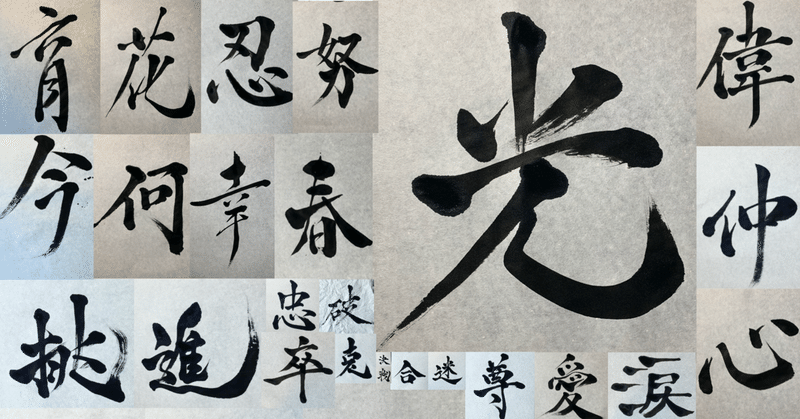 育 花 忍 努
今 何 幸 春
挑 進 忠 破
卒
光
合 迷 尊 愛 涙
偉
仲
心